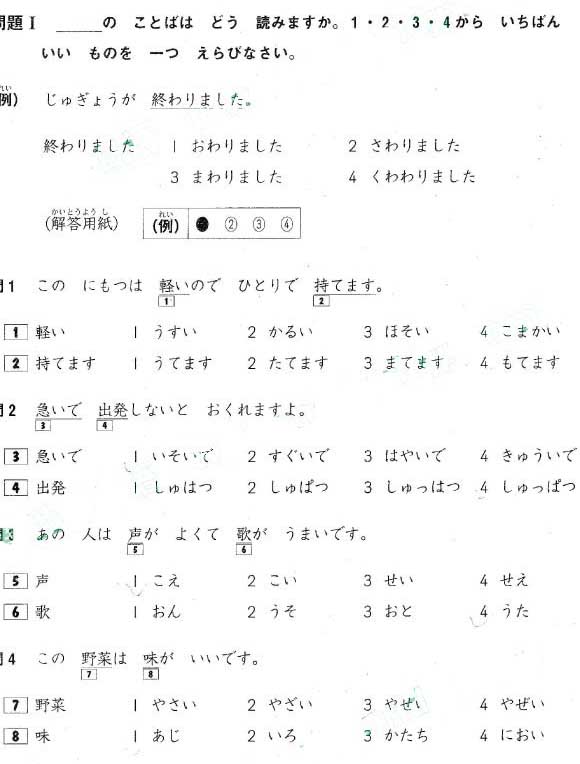 問題Ⅰ ＿＿の ことばは どう 読みますか。1・2・3・4から いちばん
いい ものを 一つ えらびなさい。
れい
例) じゅぎょうが 終わりました。
終わりました 1 おわりました 2 さわりました
3 まわりました 4 くわわりました
かいとうようし れい
(解答用紙) (例) ● ② ③ ④
問1 この にもつは 軽いので ひとりで 持てます。
1 2
1 軽い 1 うすい 2 かるい 3 ほそい 4 こまかい
2 持てます 1 うてます 2 たてます 3 まてます 4 もてます
問2 急いで 出発しないと おくれますよ。
3 4
3 急いで 1 いそいで 2 すぐいで 3 はやいで 4 きゅういで
4 出発 1 しゅはつ 2 しゅぱつ 3 しゅっはつ 4 しゅっぱつ
問3 あの 人は 声が よくて 歌が うまいです。
5 6
5 声 1 こえ 2 こい 3 せい 4 せえ
6 歌 1 おん 2 うそ 3 おと 4 うた
問4 この 野菜は 味が いいです。
7 8
7 野菜 1 やさい 2 やざい 3 やせい 4 やぜい
8 味 1 あじ 2 いろ 3 かたち 4 におい